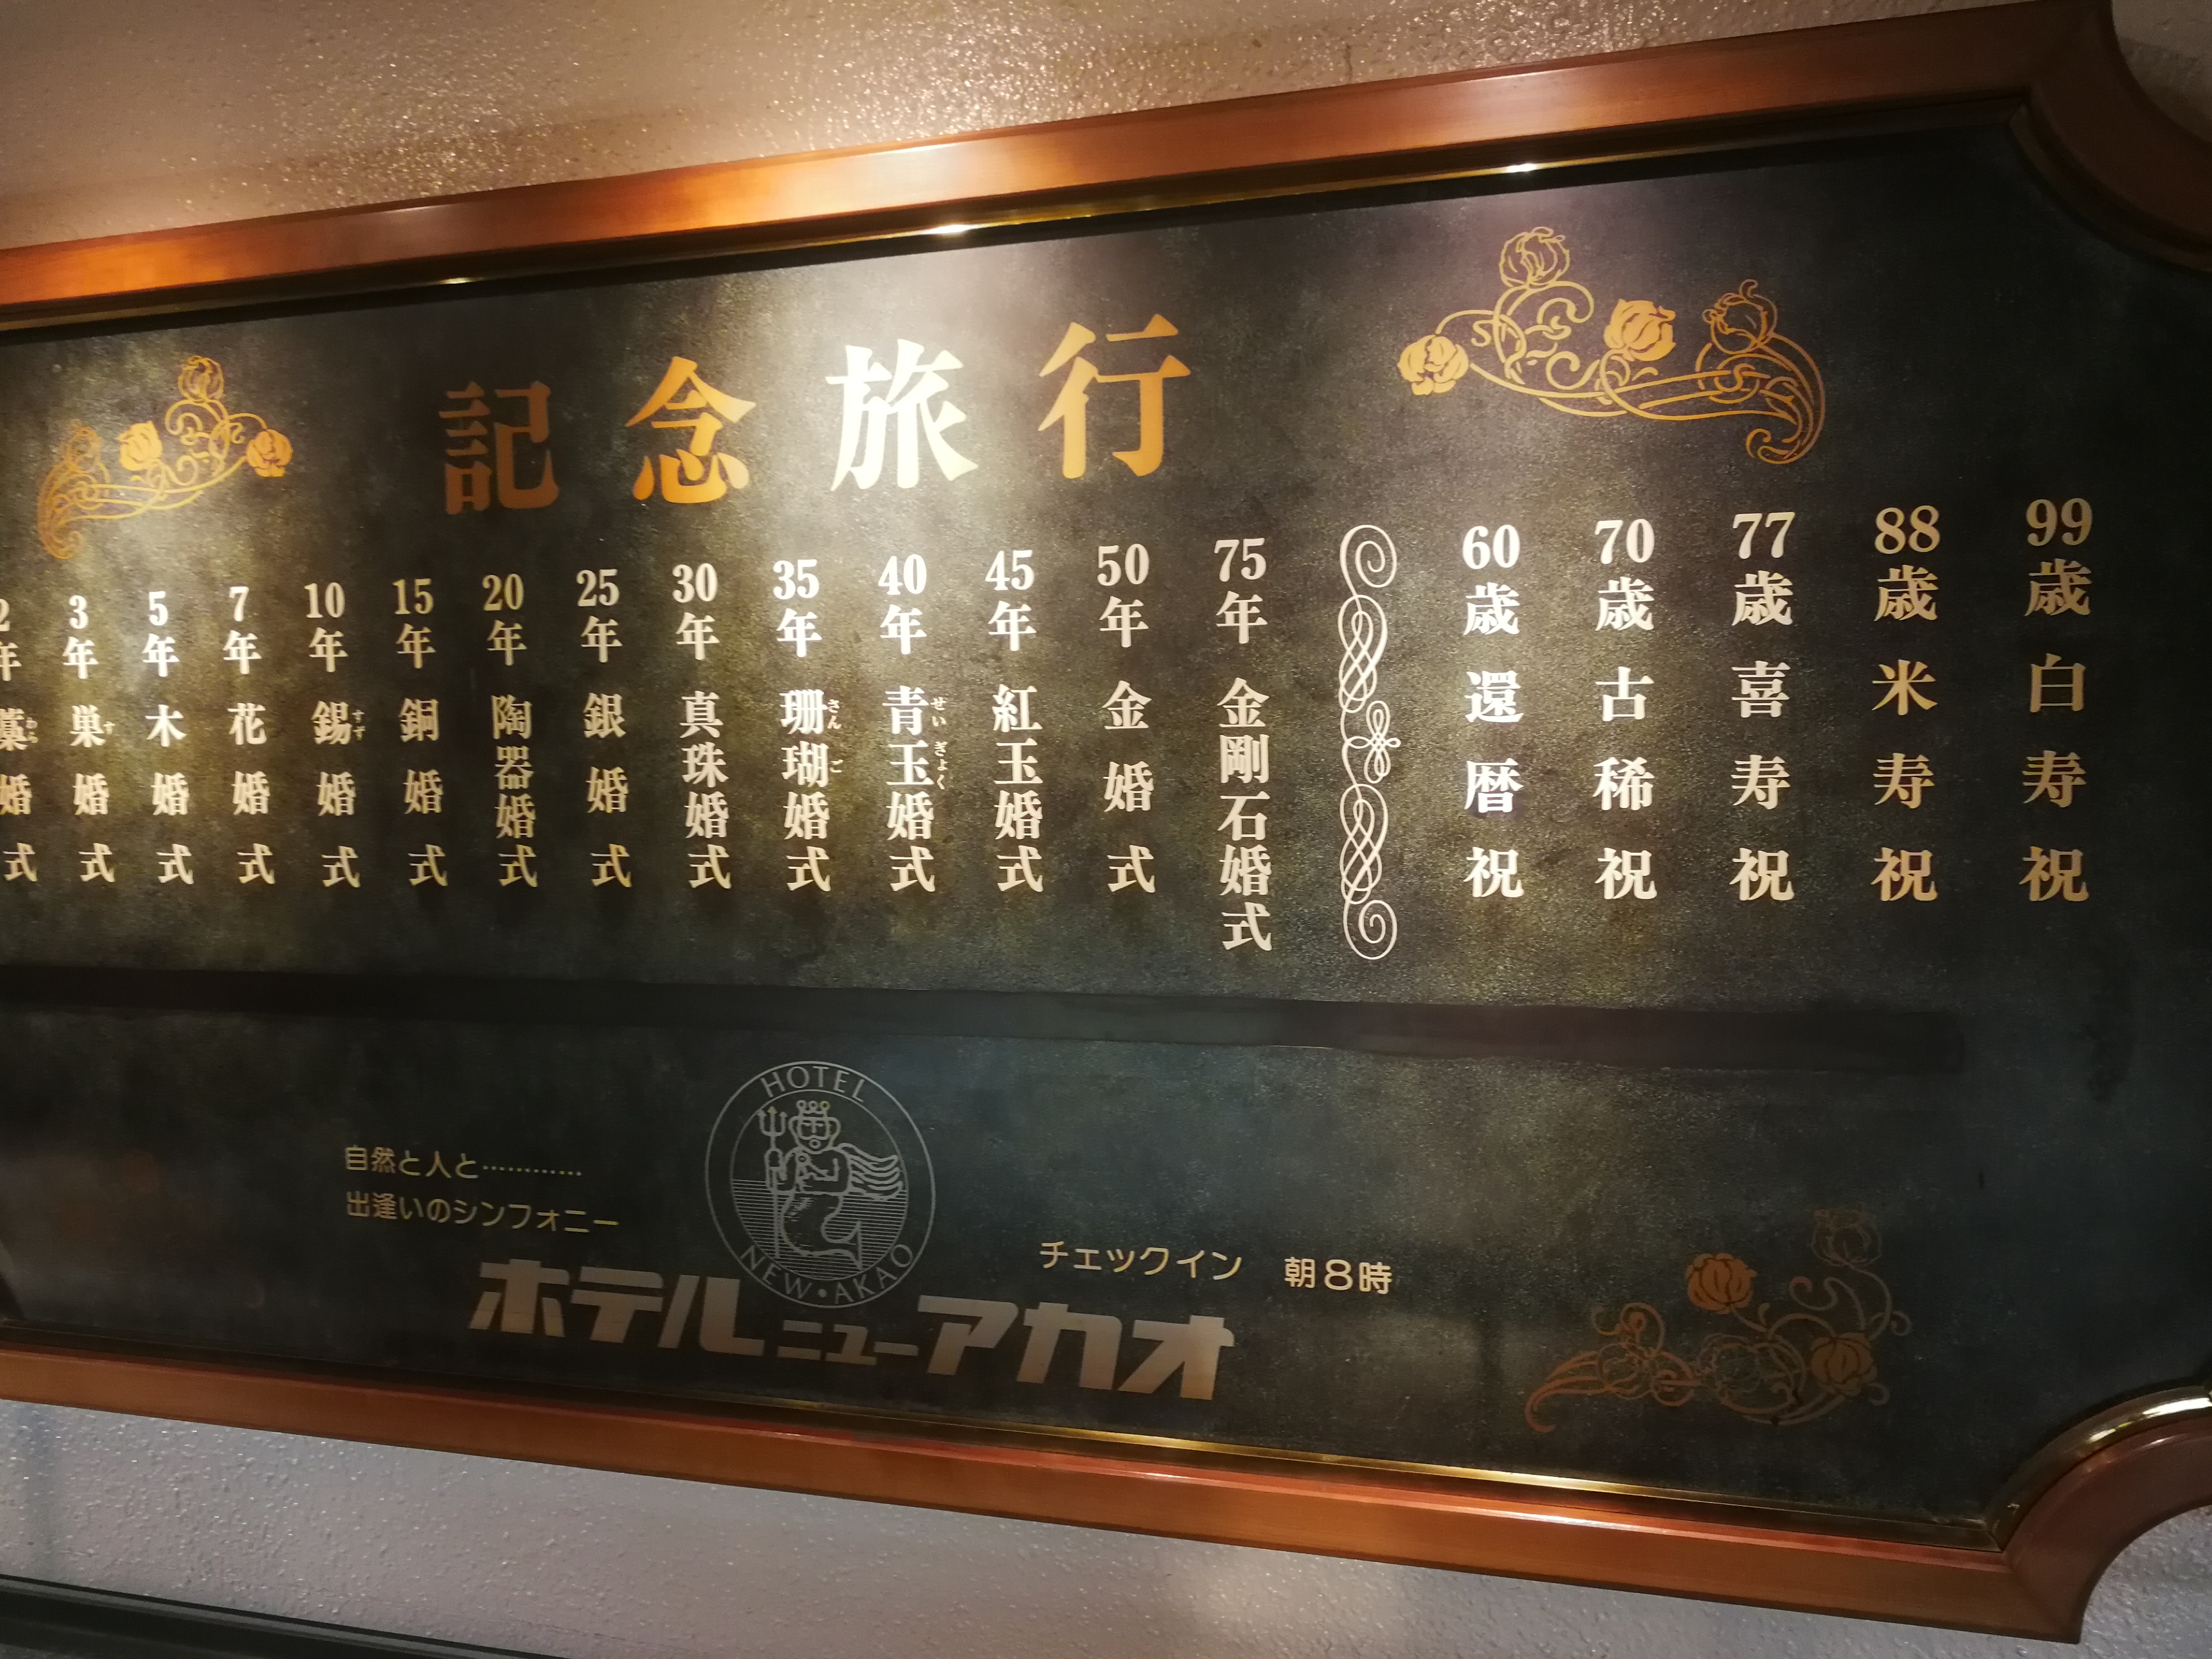 記念旅行
2年 藁婚式
わら
3年 巣婚式
す
5年 木婚式
7年 花婚式
10年 錫婚式
すず
15年 銅婚式
20年 陶器婚式
25年 銀婚式
30年 真珠婚式
35年 珊瑚婚式
さんご
40年 青玉婚式
せいぎょく
45年 紅玉婚式
50年 金婚式
75年 金剛石婚式
60歳 還暦祝
70歳 古稀祝
77歳 喜寿祝
88歳 米寿祝
99歳 白寿祝
自然と人と…………
出逢いのシンフォニー
HOTEL
NEW・AKAO
ホテルニューアカオ
チェックイン 朝8時